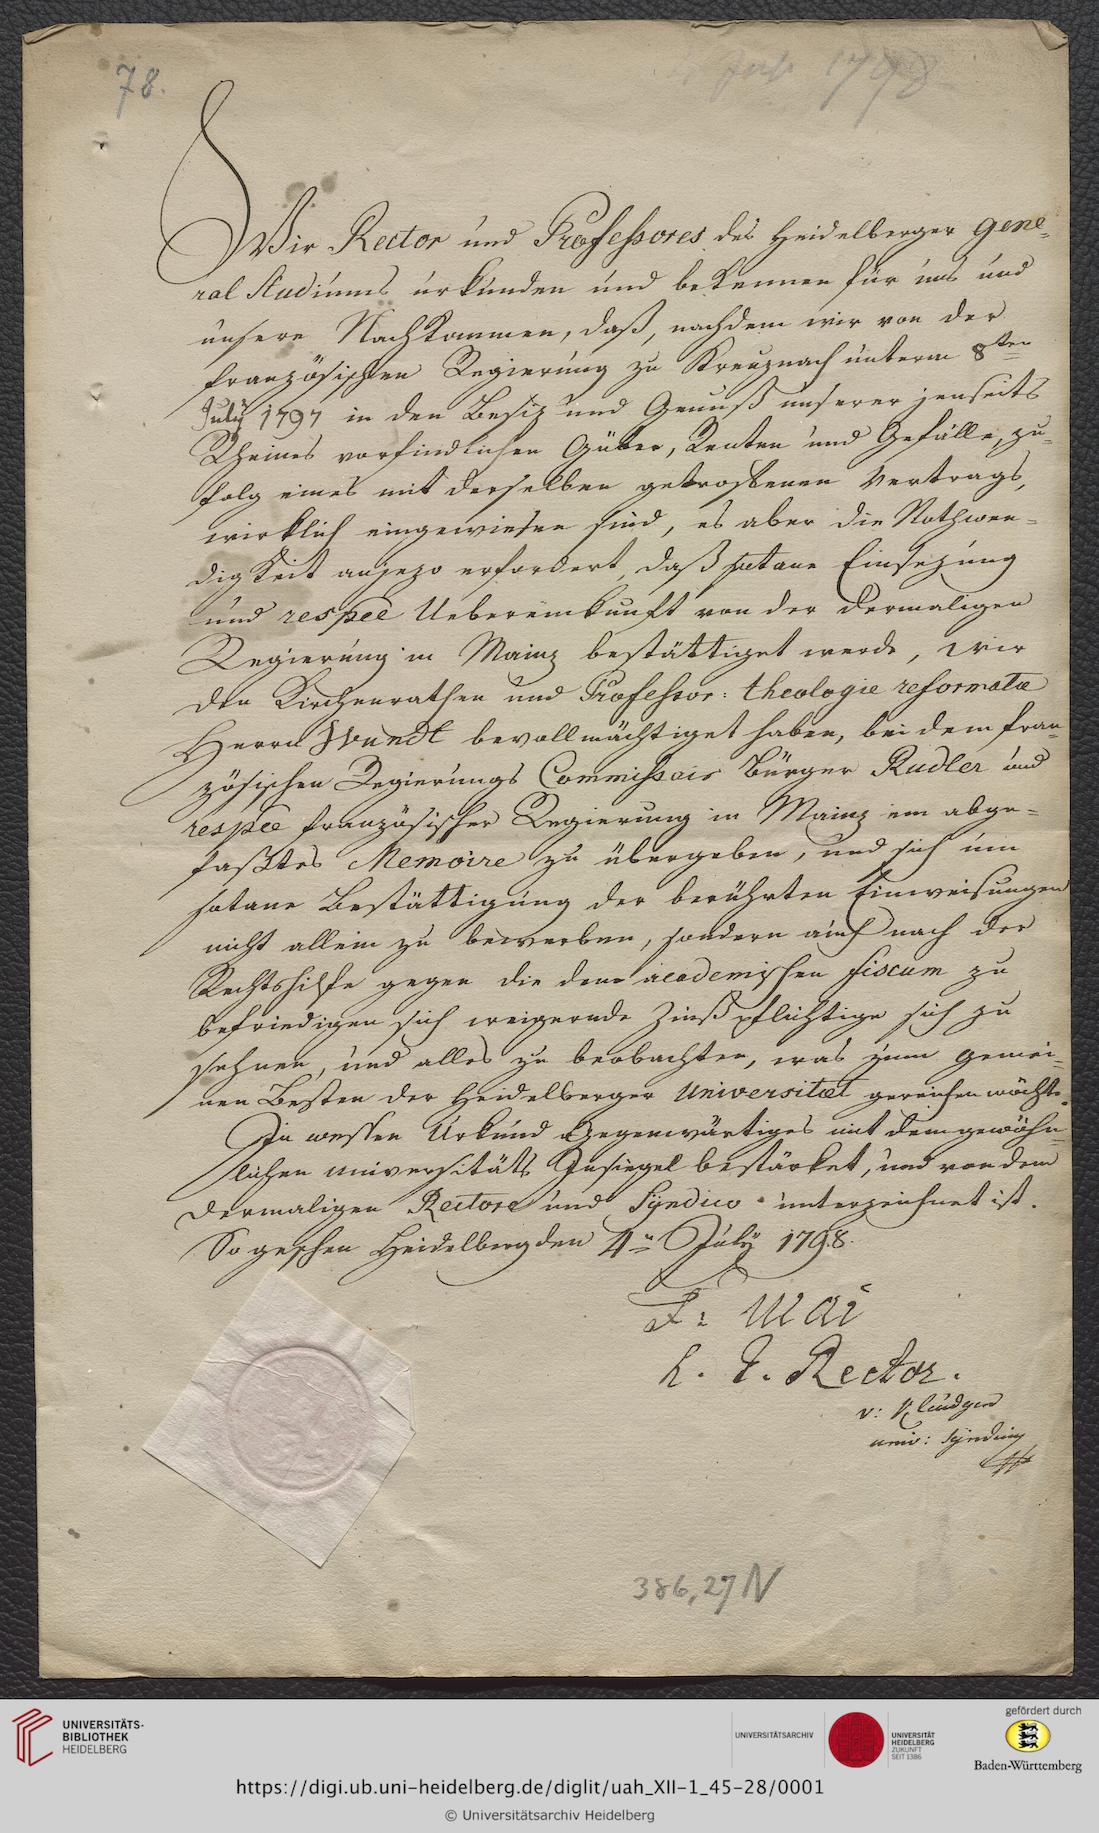 78.
4 July 1798
Wir Rector und Professores des Heidelberger Gene-
ral Studiums urkunden und bekennen für uns und
unsere Nachkommen, daß, nachdem wir von der
französischen Regierung zu Kreuznach unterm 8ten
July 1797 in den Besiz und Genuß unserer jenseits
Rheines vorfindlichen Güter, Renten und Gefälle, zu-
folg eines mit derselben getroffenen Vertrags,
wirklich eingewiesen sind, es aber die Nothwen-
digkeit anjezo erfordert, daß sotane Einsezung
und respee Uebereinkunft von der dermaligen
Regierung in Mainz bestättiget werde, wir
den Kirchenrathen und Professor: theologie reformatæ
Herrn Wundt bevollmächtiget haben, bei dem fran-
zösischen Regierungs Commissair Bürger Rudler und
respee französischer Regierung in Mainz ein abge-
faßtes Memoire zu übergeben, und sich um
sotane Bestättigung der berührten Einweisungen
nicht allein zu bewerben, sondern auch nach der
Rechtshilfe gegen die dem academischen fiscum zu
befriedigen sich weigernde Zinßpflichtige sich zu
sehnen, und alles zu beobachten, was zum gemei-
nen Besten der Heidelberger Universitæt gereichen möchte.
In wessen Urkund Gegenwärtiges mit dem gewöhn-
lichen universitäts Insiegel bestärket, und von dem
dermaligen Rectore und Syndico unterzeichnet ist.
So geschen Heidelberg den 4n July 1798.
F: Mai
h. t. Rector.
v: Kleudgen
univ: Syndicus
386,27 N
UNIVERSITÄTS-
BIBLIOTHEK
HEIDELBERG
UNIVERSITÄTSARCHIV
UNIVERSITÄT
HEIDELBERG
ZUKUNFT
SEIT 1386
gefördert durch
Baden-Württemberg
https://digi.ub.uni-heidelberg.de/diglit/uah_XII-1_45-28/0001
© Universitätsarchiv Heidelberg